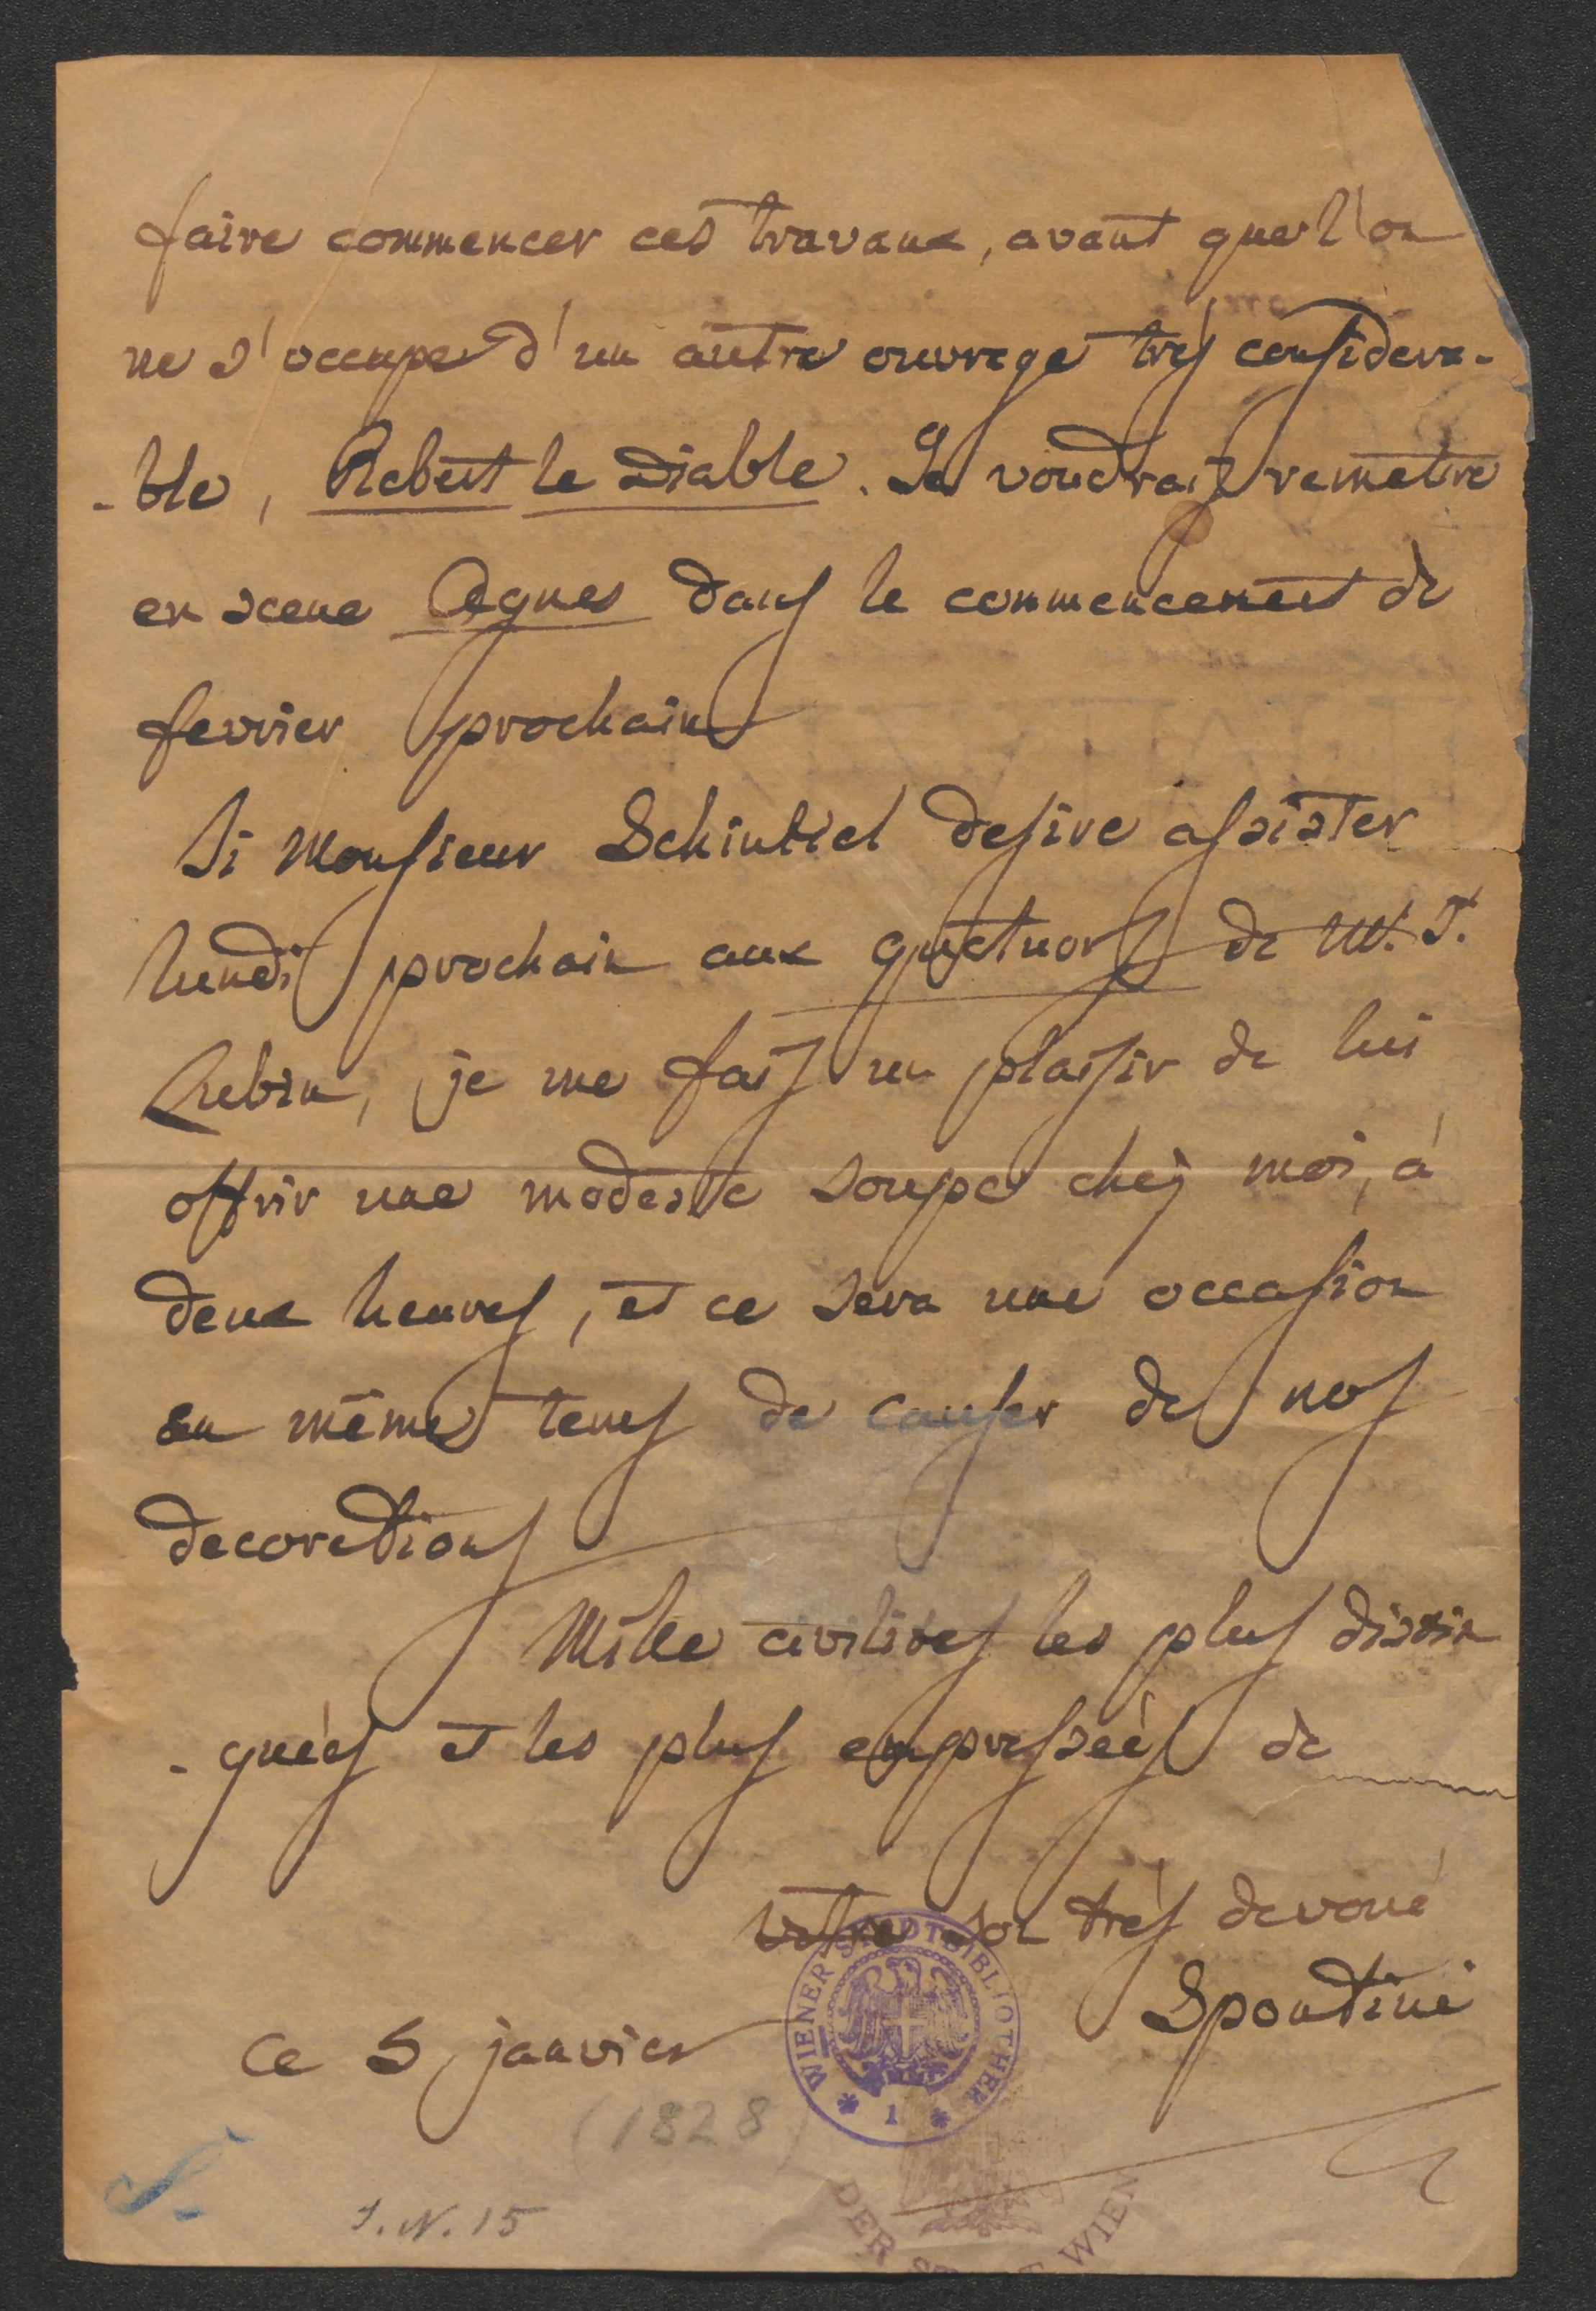 faire commencer ces travaux, avant que l'on
ne s'occupe d'un autre ouvrage très considera-
-ble, Robert le Diable. Je voudrais remetre
en scene Agnes dans le commencement de
fevrier prochain
Si Monsieur Schinkel desire assister
lundi prochain aux quatuors de M.
je me fais un plaisir de lui
offrir une modeste soupe chez moi, à
deux heures, et ce sera une occasion
en même tems de causer de nos
decorations
Mille civilités les plus distin
-guées et les plus empressées de
votre très devoué
Spontini
ce 5 janvier
(1828)
I.N. 15
WIENER STADTBIBLIOTHEK
* 1 *
DER STADT WIEN